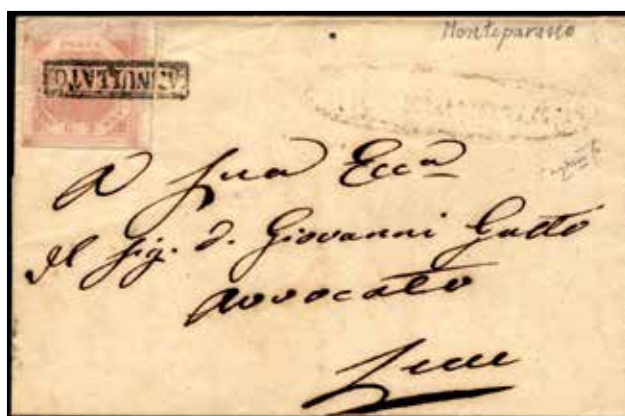 Monteparano
ANNULLATO
A Sua Ecc.a
Il Sig. D. Giovanni Gatto
Avvocato
Lecce